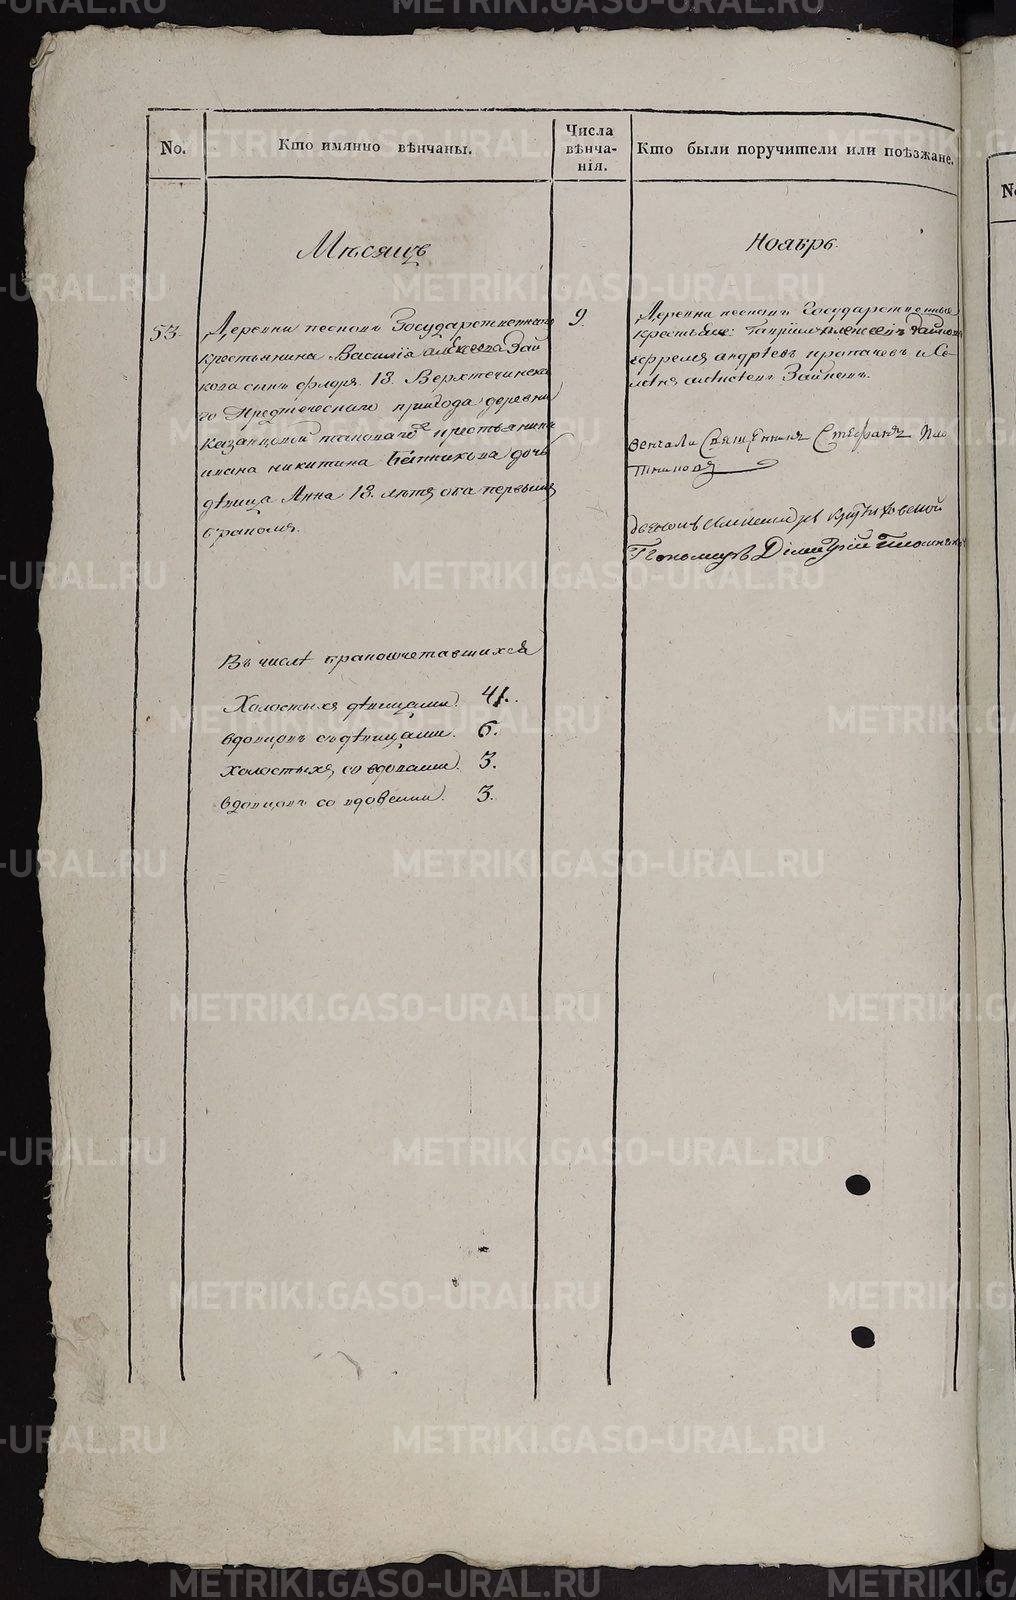 No.
Кто имянно вѣнчаны.
Числа
вѣнча-
нія.
Кто были поручители или поѣзжане.
Мѣсяцъ
Ноябрь.
53.
Деревни Государственнаго
крестьянина Василія Алексеева Зай
кова сынъ Флоръ. 18. Верхтечинска
го Предтеческаго прихода деревни
Казанцовой таковагоже крестьянина
Ивана Никитина дочь
дѣвица Анна 18. лѣтъ оба первымъ
бракомъ.
9.
Деревни Государственные
крестьяне: Гавріилъ Алексеевъ Зайковъ
Ефремъ Андреевъ и Се-
Зайковъ.
венчали Священникъ Стефанъ Пло
тниковъ
Александръ
Пономарь Димитрій Плотниковъ
Въ числѣ бракосочетавшихся
Холостыхъ дѣвицами. 41.
вдовцовъ съ дѣвицами. 6.
холостыхъ, со вдовами. 3.
вдовцовъ со вдовыми. 3.
METRIKI.GASO-URAL.RU